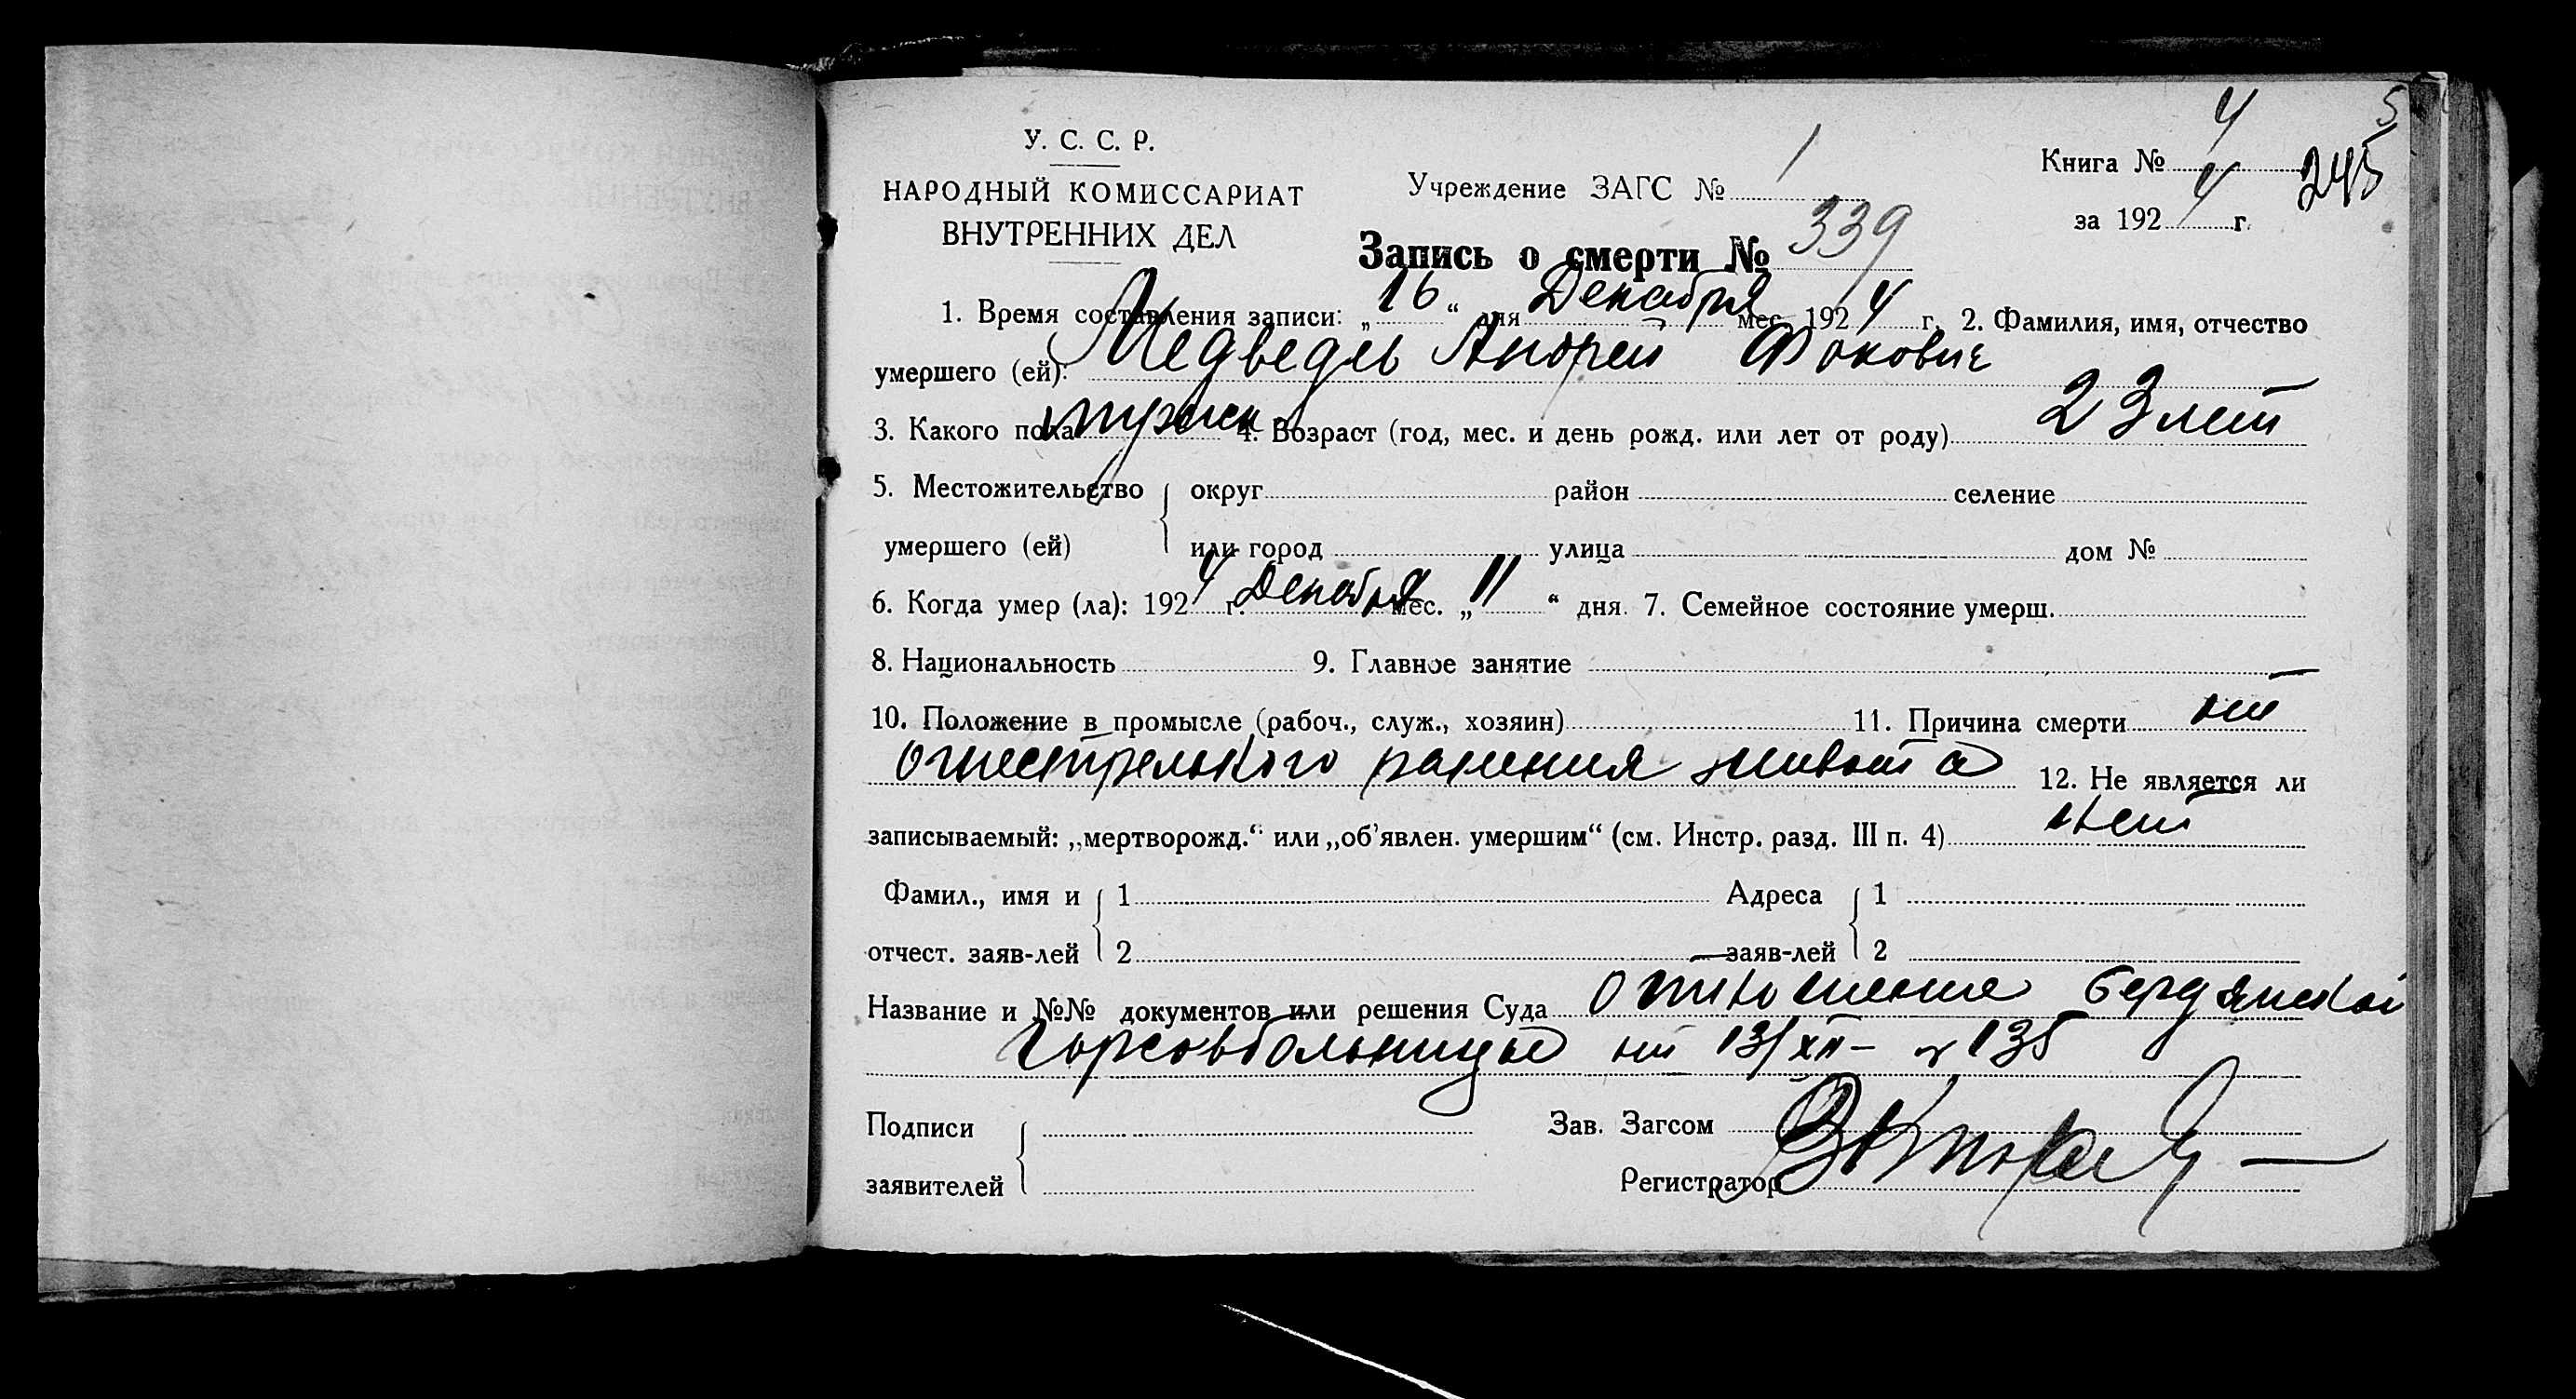 5
У. С. С. Р.
НАРОДНЫЙ КОМИССАРИАТ
ВНУТРЕННИХ ДЕЛ
Учреждение ЗАГС № 1
Книга № 4
245
за 1924 г.
Запись о смерти № 339
1. Время составления записи: „16“ дня Декабря мес. 1924 г. 2. Фамилия, имя, отчество
умершего (ей): Медведев Андрей Фокович
3. Какого пола мужск 4. Возраст (год, мес. и день рожд. или лет от роду) 23 лет
5. Местожительство округ район селение
умершего (ей) или город улица дом №
6. Когда умер (ла): 1924 г. Декабря мес. „11“ дня. 7. Семейное состояние умерш.
8. Национальность 9. Главное занятие
10. Положение в промысле (рабоч., служ., хозяин) 11. Причина смерти от
огнестрельного ранения живота 12. Не является ли
записываемый: „мертворожд.“ или „об’явлен. умершим“ (см. Инстр. разд. III п. 4) нет
Фамил., имя и 1 Адреса 1
отчест. заяв-лей 2 заяв-лей 2
Название и №№ документов или решения Суда отношение бердянской
Горсовбольницы от 13/XII – № 135
Подписи Зав. Загсом
заявителей Регистратор